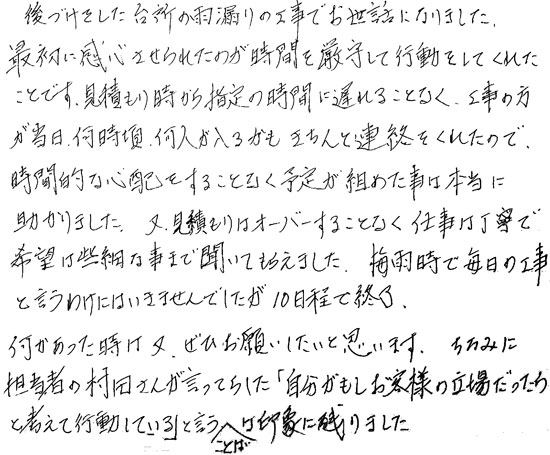 後づけをした台所の雨漏りの工事でお世話になりました。
最初に感心させられたのが時間を厳守して行動をしてくれた
ことです。見積もり時から指定の時間に遅れることなく、工事の方
が当日、何時頃、何人が入るかもきちんと連絡をくれたので、
時間的な心配をすることなく予定が組めた事は本当に
助かりました。又、見積もりはオーバーすることなく仕事は丁寧で
希望は些細な事まで聞いてもらえました。梅雨時で毎日の工事
と言うわけにはいきませんでしたが10日程で終了。
何かあった時は又、ぜひお願いしたいと思います。ちなみに
担当者の村田さんが言ってらした「自分がもしお客様の立場だったら
と考えて行動している」と言うことばは印象に残りました